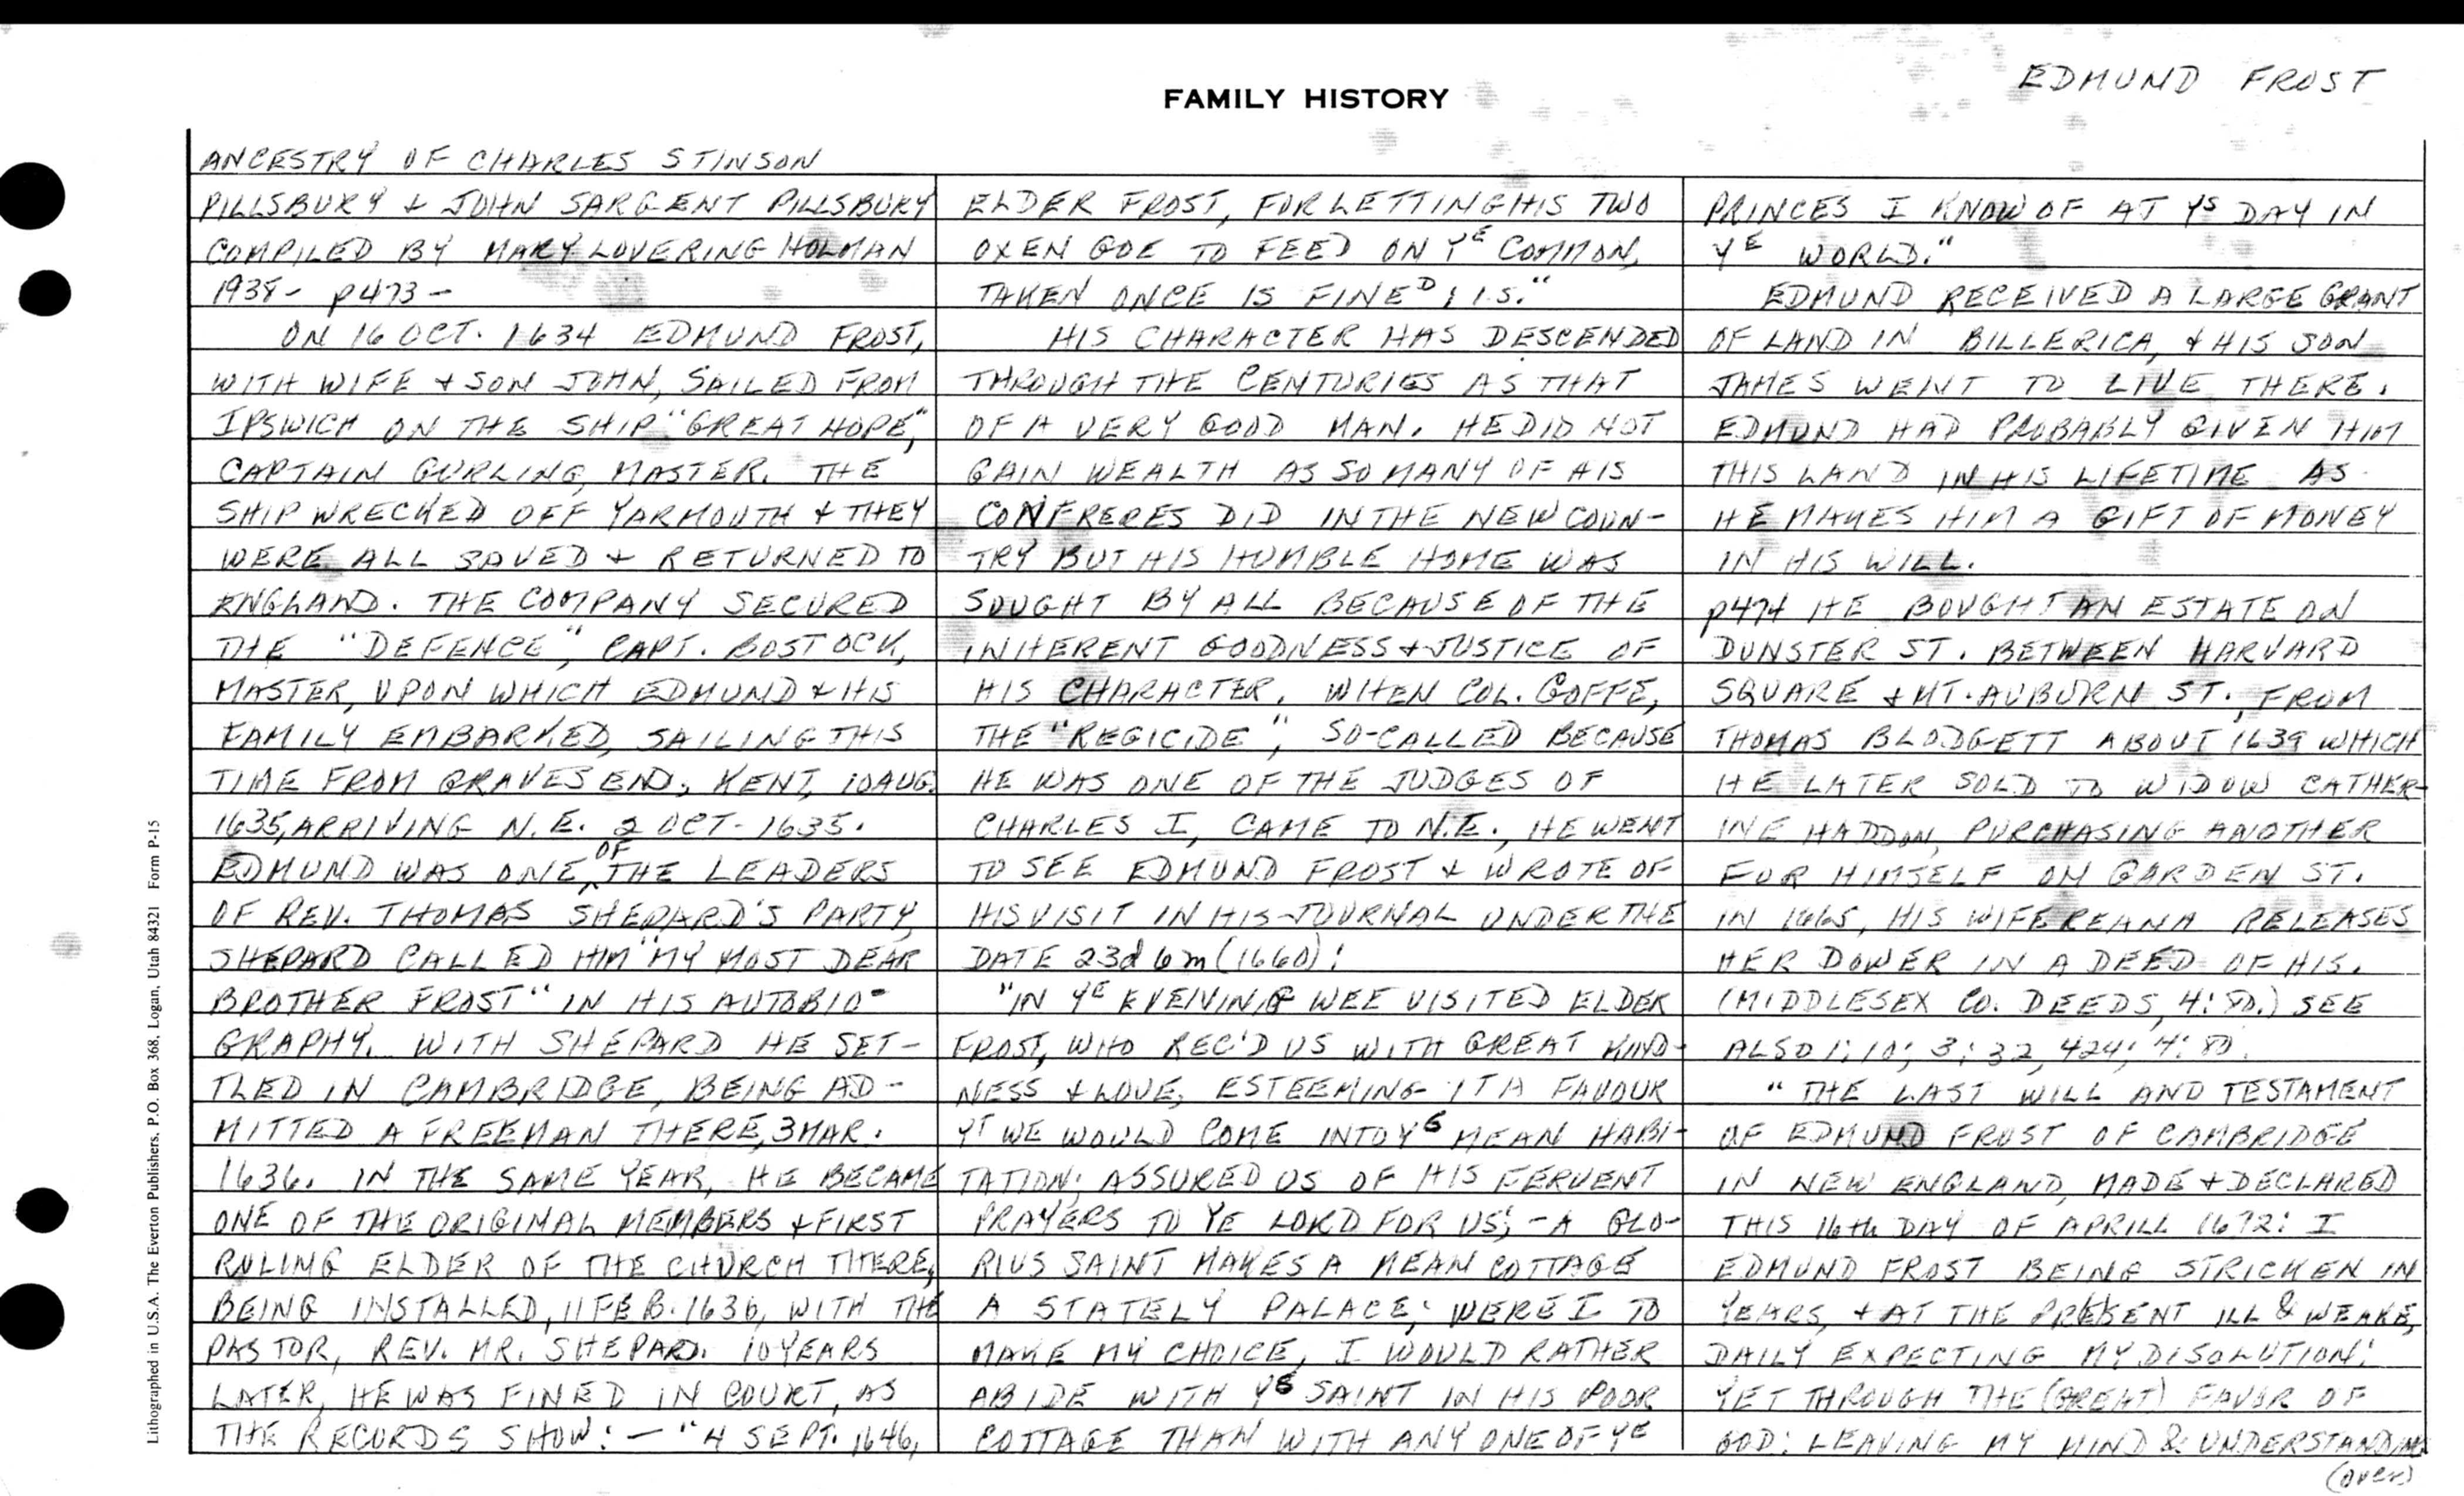 EDMUND FROST
FAMILY HISTORY
ANCESTRY OF CHARLES STINSON
PILLSBURY & JOHN SARGENT PILLSBURY
COMPILED BY MARY LOVERING HOLMAN
1938- p473-
ON 16 OCT. 1634 EDMUND FROST,
WITH WIFE & SON JOHN, SAILED FROM
IPSWICH ON THE SHIP "GREAT HOPE",
CAPTAIN GURLING, MASTER. THE
SHIP WRECKED OFF YARMOUTH & THEY
WERE ALL SAVED & RETURNED TO
ENGLAND. THE COMPANY SECURED
THE "DEFENCE", CAPT. BOSTOCK,
MASTER, UPON WHICH EDMUND & HIS
FAMILY EMBARKED, SAILING THIS
TIME FROM GRAVESEND, KENT, 10 AUG.
1635, ARRIVING N.E. 2 OCT- 1635.
EDMUND WAS ONE OF THE LEADERS
OF REV. THOMAS SHEPARD'S PARTY,
SHEPARD CALLED HIM "MY MOST DEAR
BROTHER FROST" IN HIS AUTOBIO-
GRAPHY. WITH SHEPARD HE SET-
TLED IN CAMBRIDGE, BEING AD-
MITTED A FREEMAN THERE, 3 MAR.
1636. IN THE SAME YEAR, HE BECAME
ONE OF THE ORIGINAL MEMBERS & FIRST
RULING ELDER OF THE CHURCH THERE,
BEING INSTALLED, 11 FEB. 1636, WITH THE
PASTOR, REV. MR. SHEPARD. 10 YEARS
LATER, HE WAS FINED IN COURT, AS
THE RECORDS SHOW: - "4 SEPT. 1646,
ELDER FROST, FOR LETTING HIS TWO
OXEN GOE TO FEED ON YE COMMON,
TAKEN ONCE IS FINED; 1.S."
HIS CHARACTER HAS DESCENDED
THROUGH THE CENTURIES AS THAT
OF A VERY GOOD MAN. HE DID NOT
GAIN WEALTH AS SO MANY OF HIS
CONFRERES DID IN THE NEW COUN-
TRY BUT HIS HUMBLE HOME WAS
SOUGHT BY ALL BECAUSE OF THE
INHERENT GOODNESS & JUSTICE OF
HIS CHARACTER. WHEN COL. GOFFE,
THE "REGICIDE", SO-CALLED BECAUSE
HE WAS ONE OF THE JUDGES OF
CHARLES I, CAME TO N.E., HE WENT
TO SEE EDMUND FROST & WROTE OF
HIS VISIT IN HIS JOURNAL UNDER THE
DATE 23d 6m (1660):
"IN YE EVEIVING WEE VISITED ELDER
FROST, WHO REC'D US WITH GREAT KIND-
NESS & LOVE, ESTEEMING IT A FAVOUR
YT WE WOULD COME INTO YS MEAN HABI-
TATION; ASSURED US OF HIS FERVENT
PRAYERS TO YE LORD FOR US; - A GLO-
RIUS SAINT MAKES A MEAN COTTAGE
A STATELY PALACE; WERE I TO
MAKE MY CHOICE, I WOULD RATHER
ABIDE WITH YS SAINT IN HIS POOR
COTTAGE THAN WITH ANY ONE OF YE
PRINCES I KNOW OF AT YS DAY IN
YE WORLD."
EDMUND RECEIVED A LARGE GRANT
OF LAND IN BILLERICA, & HIS SON
JAMES WENT TO LIVE THERE.
EDMUND HAD PROBABLY GIVEN HIM
THIS LAND IN HIS LIFETIME AS
HE MAKES HIM A GIFT OF MONEY
IN HIS WILL.
p474 HE BOUGHT AN ESTATE ON
DUNSTER ST. BETWEEN HARVARD
SQUARE & MT. AUBURN ST., FROM
THOMAS BLODGETT ABOUT 1639 WHICH
HE LATER SOLD TO WIDOW CATHER-
INE HADDON, PURCHASING ANOTHER
FOR HIMSELF ON GARDEN ST.
IN 1665, HIS WIFE REANA RELEASES
HER DOWER IN A DEED OF HIS.
(MIDDLESEX CO. DEEDS, 4: 80.) SEE
ALSO 1: 10; 3: 32, 424; 4: 80.
"THE LAST WILL AND TESTAMENT
OF EDMUND FROST OF CAMBRIDGE
IN NEW ENGLAND, MADE & DECLARED
THIS 16th DAY OF APRILL 1672: I
EDMUND FROST BEING STRICKEN IN
YEARS, & AT THE PRESENT ILL & WEAKE,
DAILY EXPECTING MY DISOLUTION:
YET THROUGH THE (GREAT) FAVOR OF
GOD: LEAVING MY MIND & UNDERSTANDING
(over)
Lithographed in U.S.A. The Everton Publishers, P.O. Box 368, Logan, Utah 84321 Form P-15